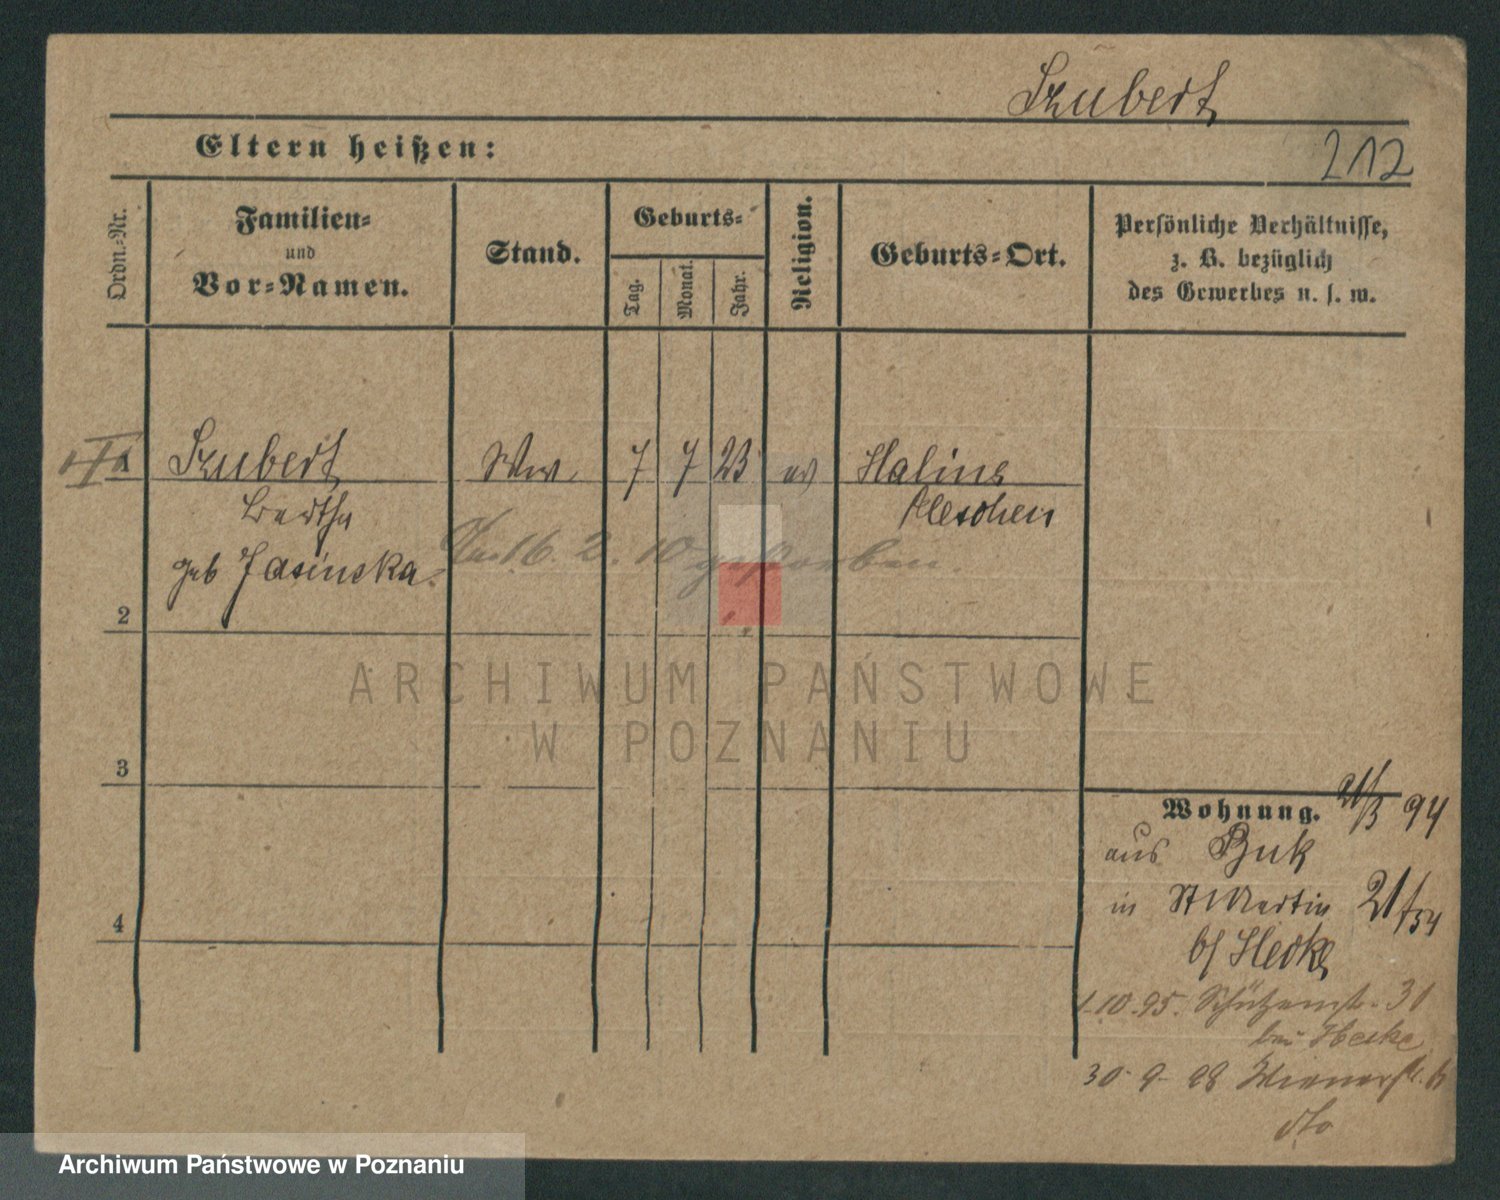 Szubert
Eltern heißen:
212
Ordn.-Nr.
Familien-
und
Vor-Namen.
Stand.
Geburts-
Tag.
Monat.
Jahr.
Religion.
Geburts-Ort.
Persönliche Verhältnisse,
z. B. bezüglich
des Gewerbes u. s. w.
1
Szubert
Ww
7
7
23
ev
Bertha
Pleschen
geb Jasinska
16. 2. 10 gestorben.
2
3
4
Wohnung. 21/3 94
aus Buk
in St Martin
b/ Hecke
1.10.95. Schützenstr. 31
bei Hecke
30.9.98 Wienerstr. 6
dto
ARCHIWUM PAŃSTWOWE
W POZNANIU
Archiwum Państwowe w Poznaniu